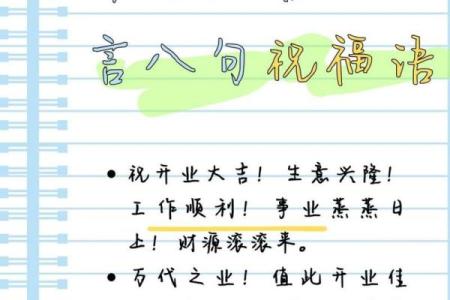 言八句祝福语
• 祝开业大吉！生意兴隆！
工作顺利！事业蒸蒸日
上！财源滚滚来。
• 万代之业！值此开业佳